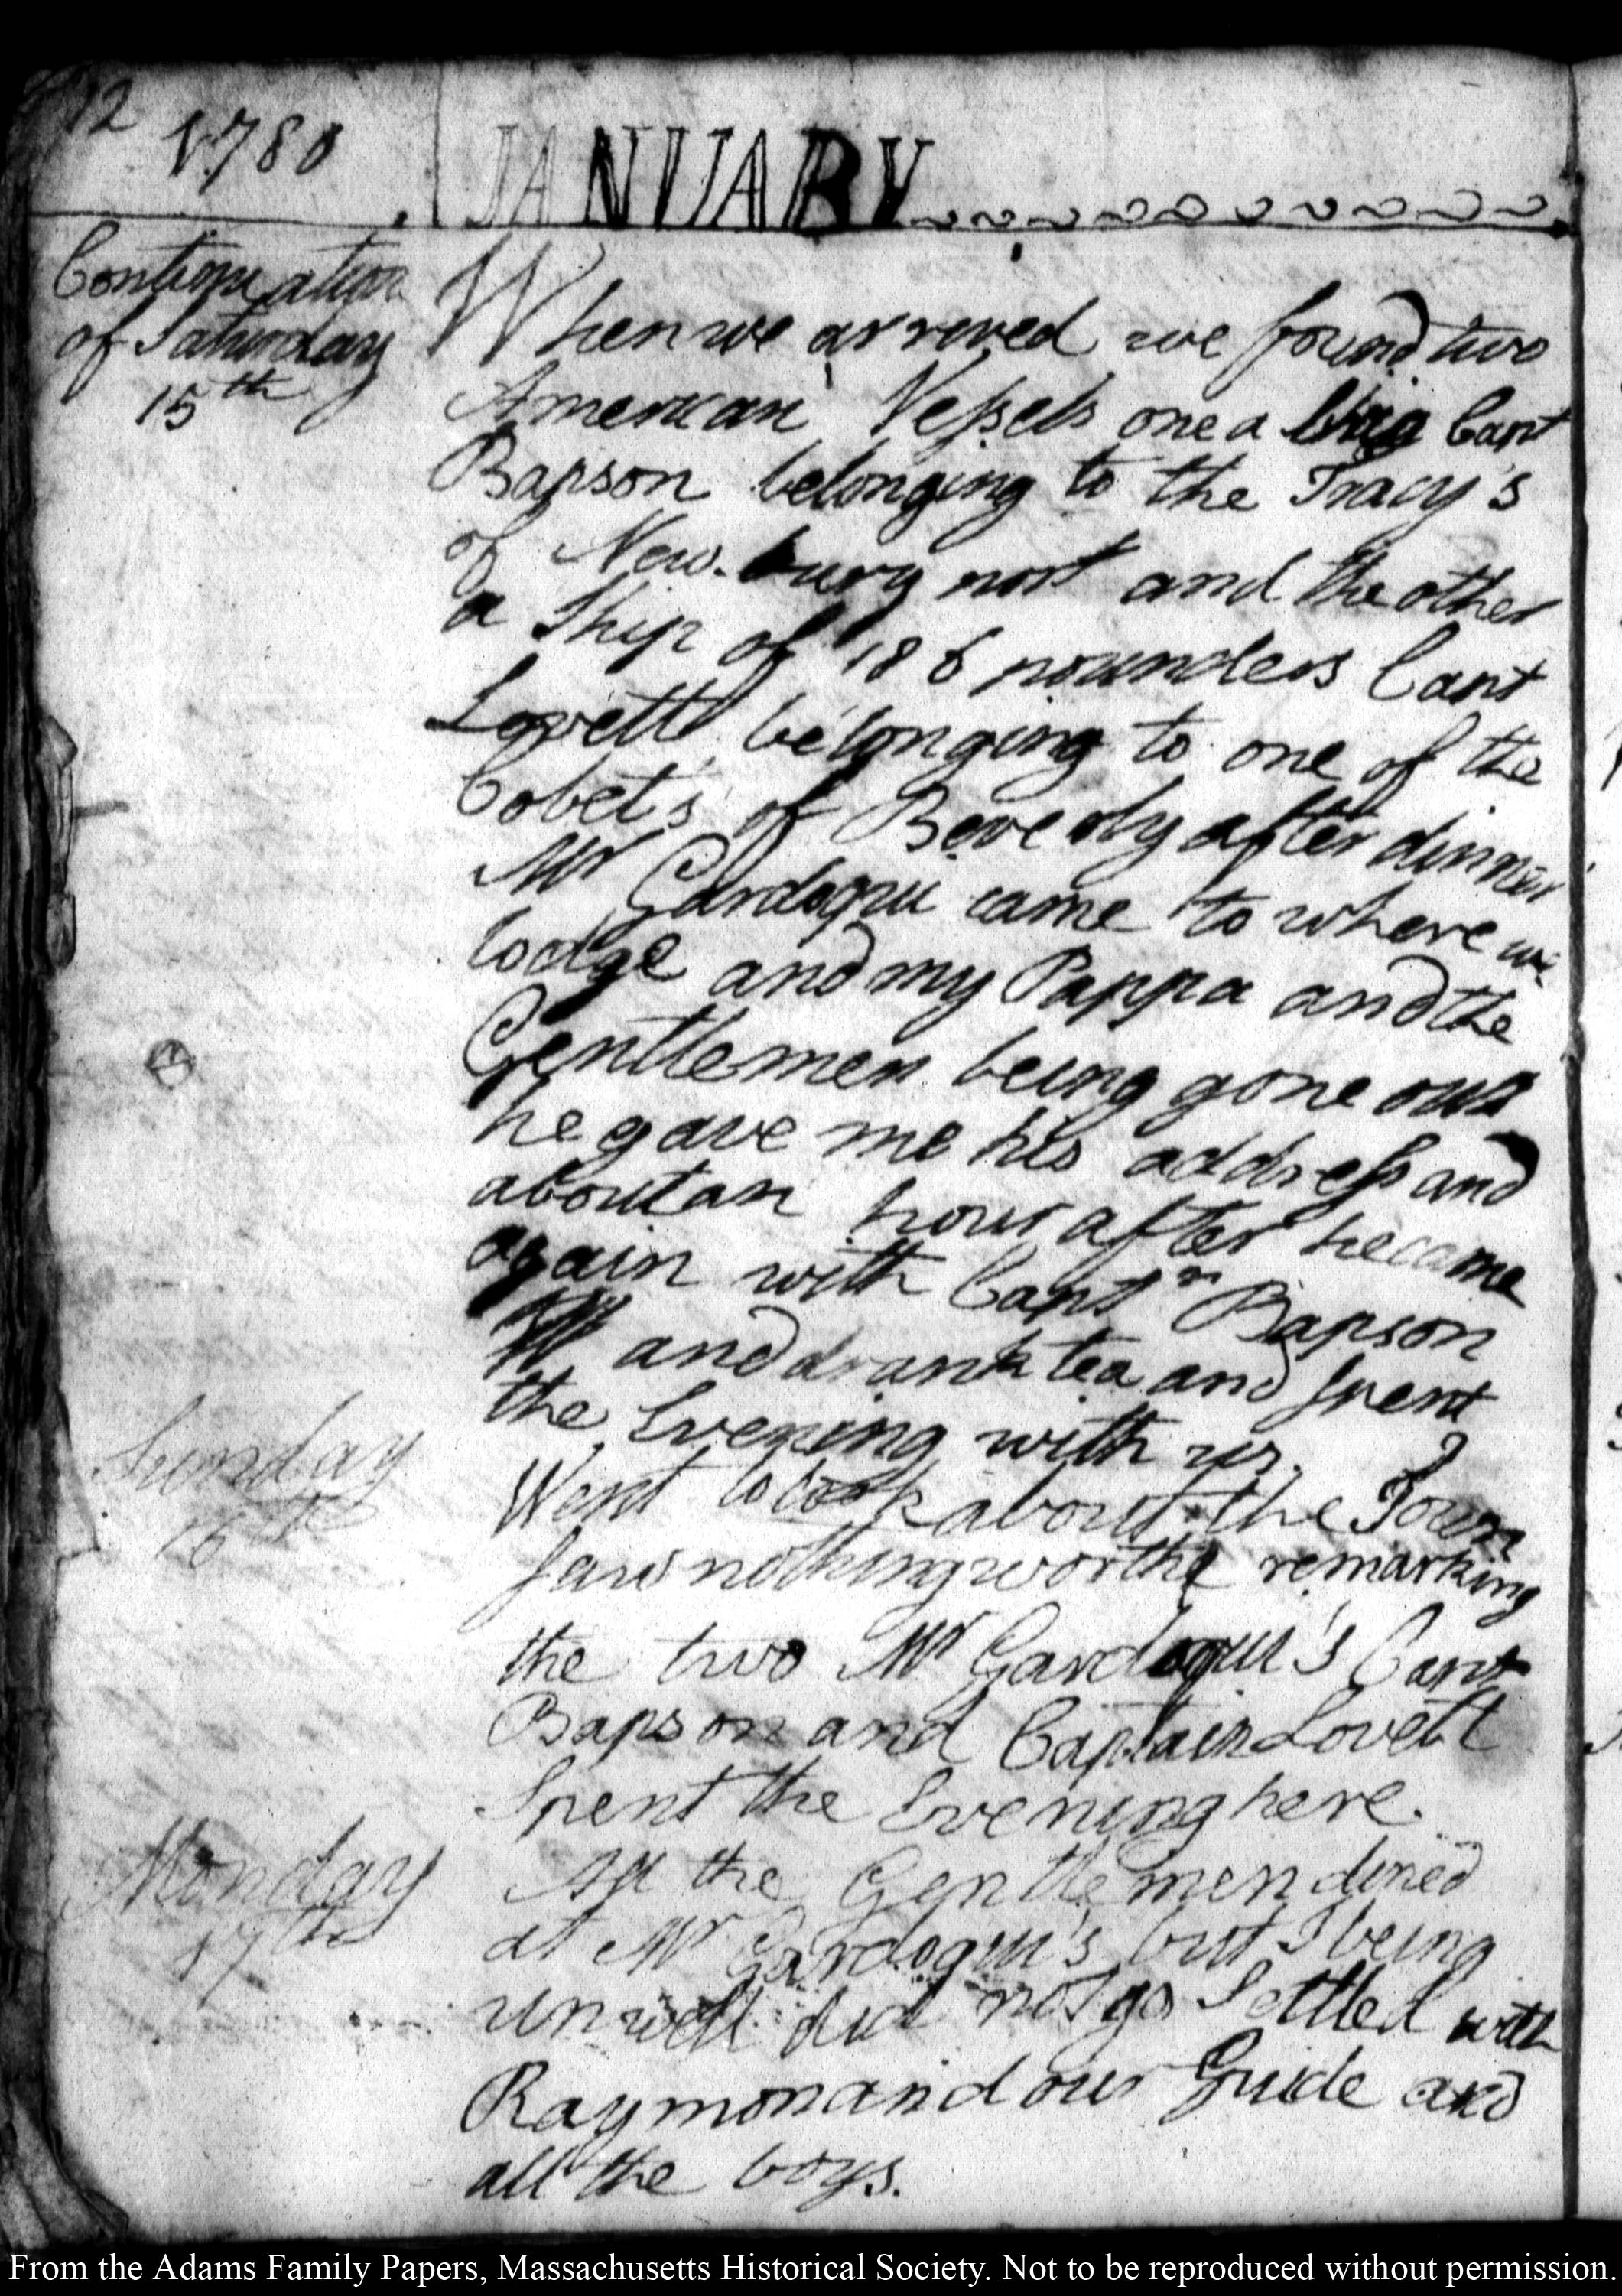 12
1780
JANUARY
Continuation
of Saturday
15th
When we arreved we found two
American Vessels one a brig Capt
Bapson belonging to the Tracy's
of New-bury port and the other
a Ship of 18 6 pounders Capt
Lovett belonging to one of the
Cobet's of Beverly after dinner
Mr Gardoqui came to where we
lodge and my Pappa and the
Gentlemen being gone out
he gave me his address and
about an hour after he came
again with Captn Bapson
and drank tea and spent
the Evening with us.
Sunday
16th
Went to look about the Town
saw nothing worth remarking
the two Mr Gardoqui's Capt
Bapson and Captain Lovett
Spent the Evening here.
Monday
17th
All the Gentlemen dined
at Mr Gardoqui's but I being
unwell did not go Settled with
Raymon and our Guide and
all the boys.
From the Adams Family Papers, Massachusetts Historical Society. Not to be reproduced without permission.